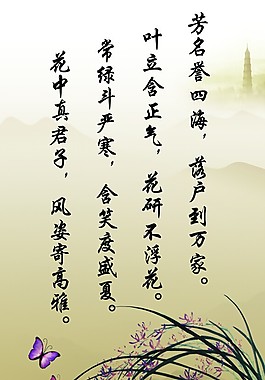 芳名誉四海，落户到万家。
叶立含正气，花研不浮花。
常绿斗严寒，含笑度盛夏。
花中真君子，风姿寄高雅。